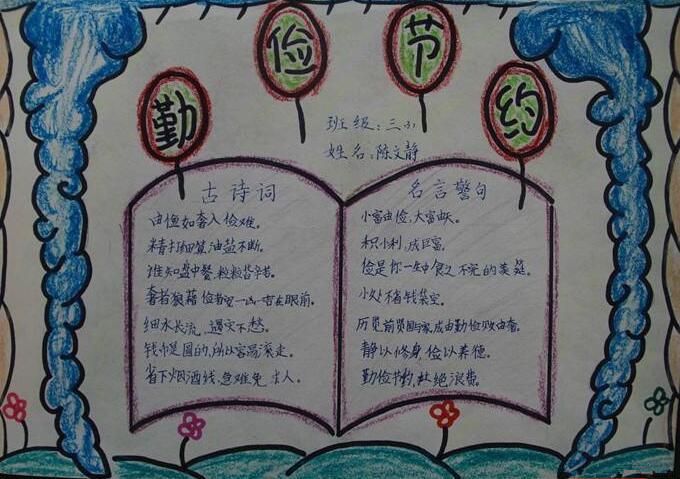 勤俭节约
班级：三(3)
姓名：陈文静
古诗词
由俭如奢入俭难。
精打细算，油盐不断。
谁知盘中餐，粒粒皆辛苦。
奢者狼藉俭者 一凶一吉在眼前。
细水长流，遇灾不愁。
钱币是圆的，所以容易滚走。
省下烟酒钱，急难免求人。
名言警句
小富由俭，大富由天。
积小利，成巨富，
俭是你一生中食之不完的美筵。
小处不省钱袋空。
历览前贤国与家，成由勤俭败由奢。
静以修身，俭以养德。
勤俭节约，杜绝浪费。